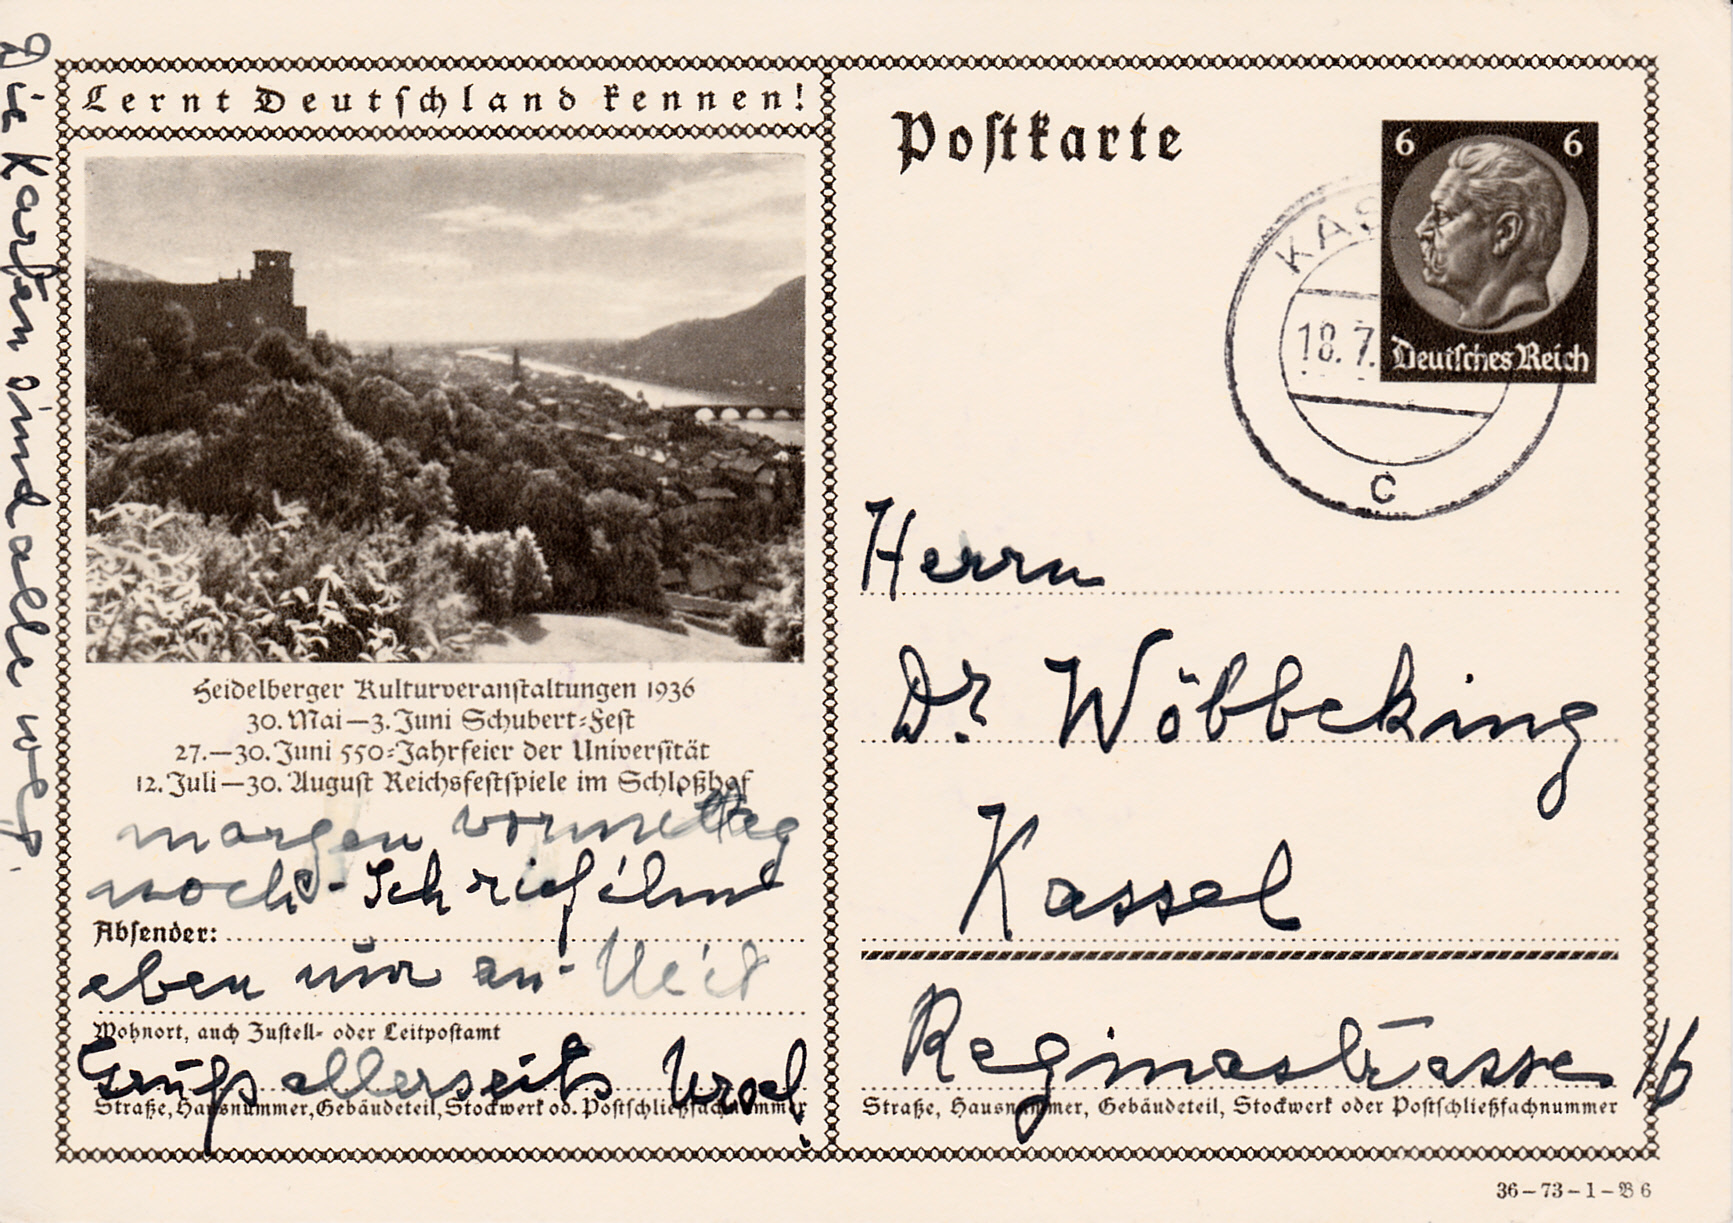 Lernt Deutschland kennen!
Heidelberger Kulturveranstaltungen 1936
30. Mai—3. Juni Schubert-Fest
27.—30. Juni 550-Jahrfeier der Universität
12. Juli—30. August Reichsfestspiele im Schloßhof
morgen vormittag
noch. Ich rief ihn
Absender:
eben nur an.
Wohnort, auch Zustell- oder Leitpostamt
Gruß allerseits Ursel
Straße, Hausnummer, Gebäudeteil, Stockwerk od. Postschließfachnummer
Die Karten sind alle weg.
Postkarte
6 6
Deutsches Reich
KAS
18.7.
c
Herrn
Dr. Wöbbeking
Kassel
Reginastrasse 16
Straße, Hausnummer, Gebäudeteil, Stockwerk oder Postschließfachnummer
36-73-1-B 6